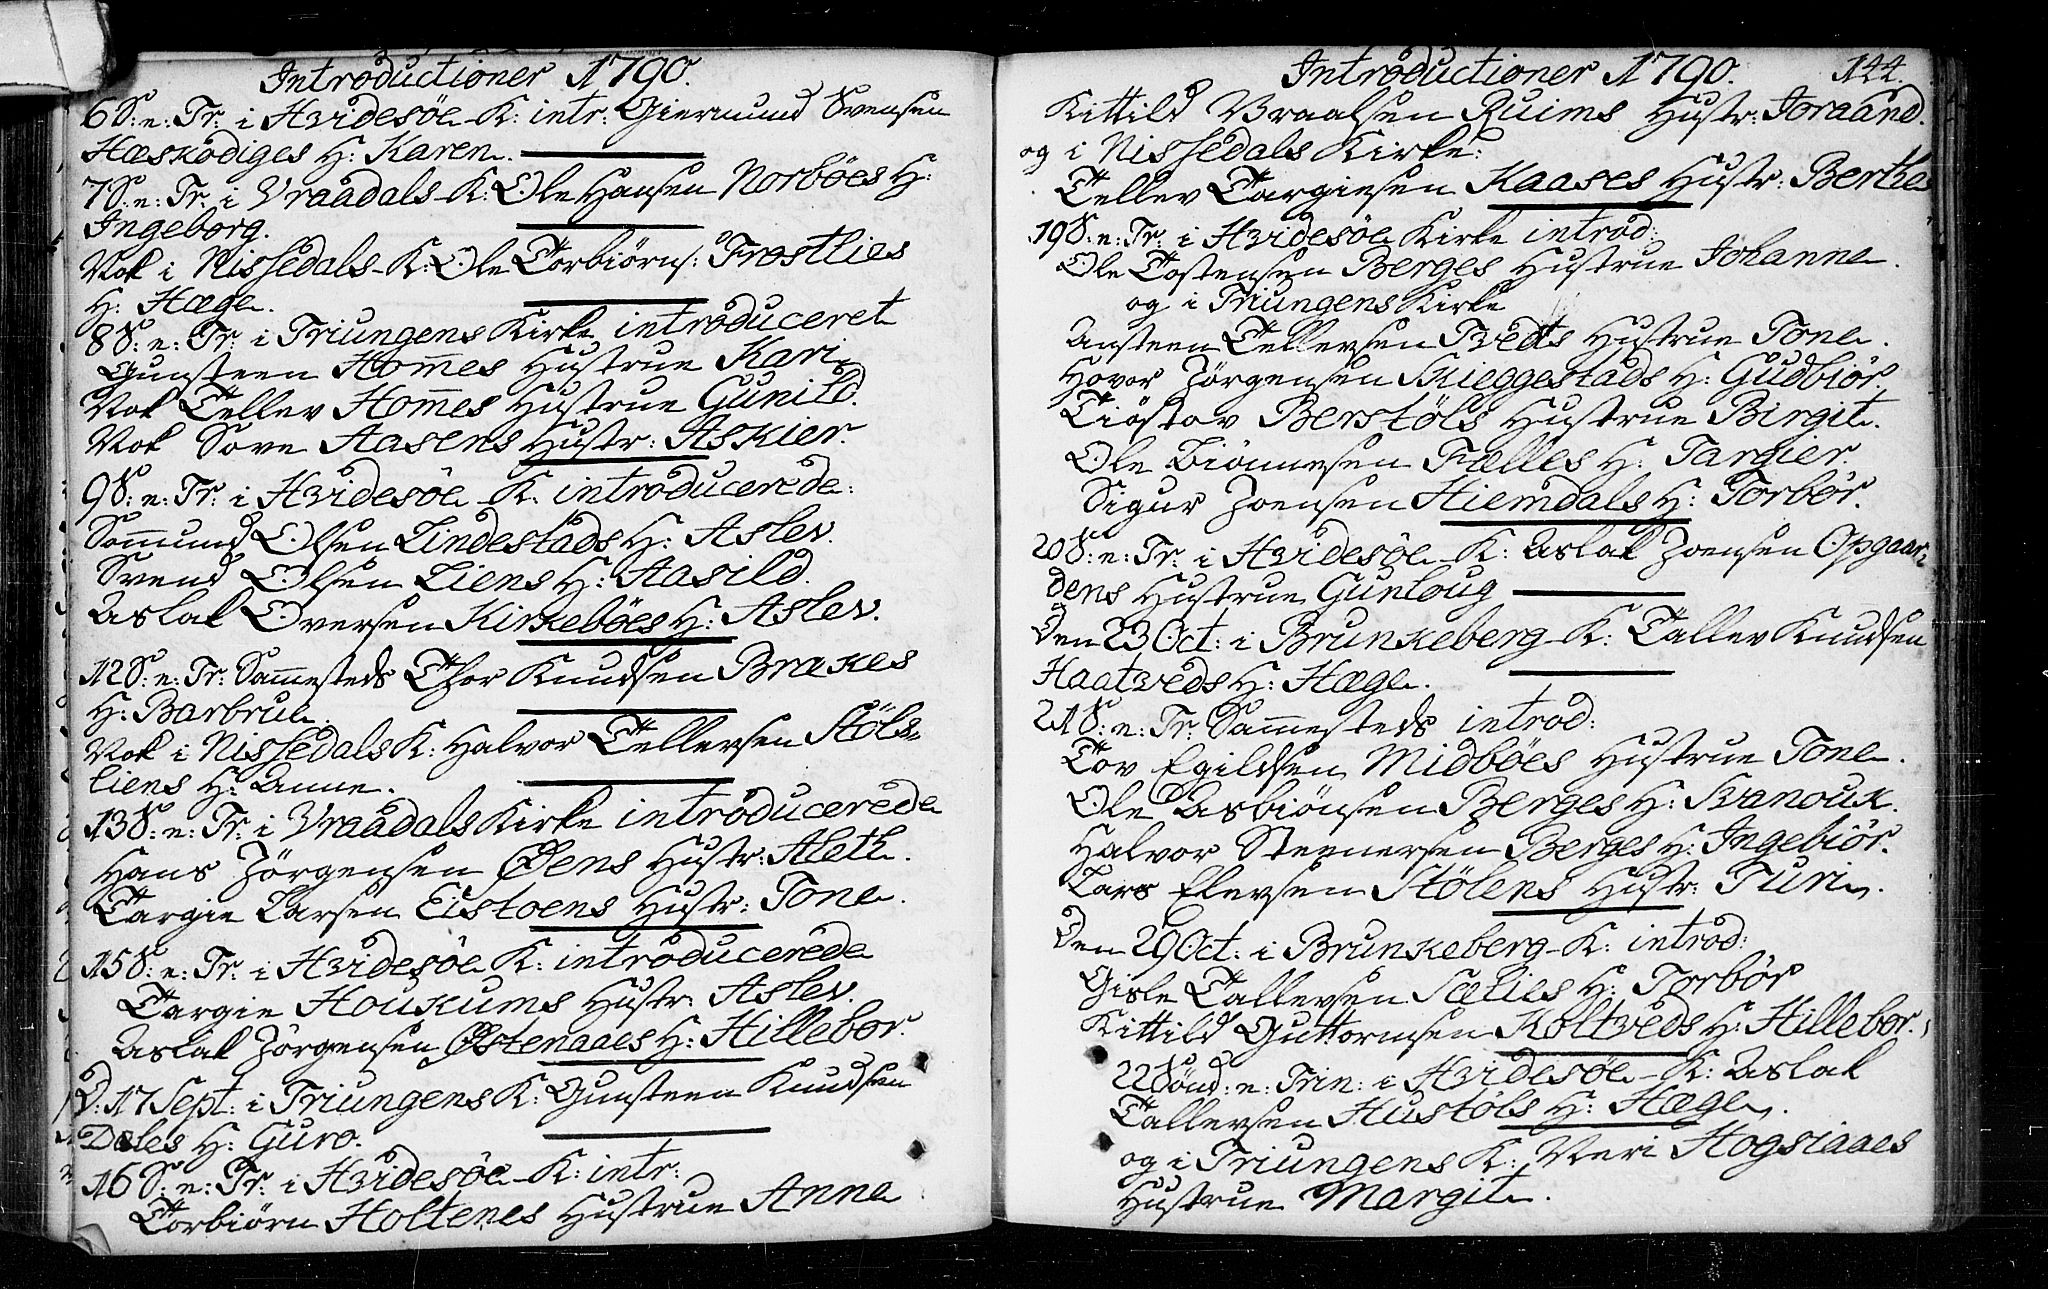 Introductioner 1790.
6 S: e: Tr: i Hvidesöe K: intr: Giermund Svensen
Hæskodiges H: Karen.
7 S: e: Tr: i Vraadals K: Ole Hansen Norböes H:
Ingeborg.
Nok i Nissedals K: Ole Torbiörns: Frostlies
H: Hæge.
8 S: e: Tr: i Triungens Kirke introduceret
Gunsteen Hom̅es Hustrue Kari
Nok Tellev Hom̅es Hustrue Gunild.
Nok Sove Aasens Hustr: Askier.
9 S: e: Tr: i Hvidesöe K. introducerede:
Som̅und Olsen Lindestads H: Aslev.
Svend Olsen Liens H: Aasild.
Aslak Oversen Kirkeböes H: Aslev.
12 S: e: Tr: Sam̅esteds Thor Knudsen Brakes
H: Barbrue.
Nok i Nissedals K: Halvor Tellevsen Stöls-
liens H: Anne.
13 S: e: Tr: i Vraadals Kirke introducerede
Hans Jörgensen Öens Hustr: Aleth.
Targie Larsen Eistoens Hustr: Tone.
15 S: e: Tr: i Hvidesöe K: introducerede
Targie Houkums Hustr: Aslev.
Aslak Jörgensen Östenaaes H: Hillebor.
D: 17 Sept: i Triungens K: Gunsteen Knudsen
Dales H: Guro.
16 S: e: Tr: i Hvidesöe K: intr:
Torbiörn Holtenes Hustrue Anne
Introductioner 1790. 144.
Kittild Vraalsen Ruims Hustr: Joraand.
og i Nissedals Kirke:
Tellev Targiesen Kaases Hustr: Berthe
19 S: e: Tr: i Hvidesöe Kirke introd:
Ole Tostensen Berges Hustrue Johanne.
og i Triungens Kirke
Austeen Tellevsen Tvedts Hustrue Tone.
Hovor Jörgensen Skieggestads H: Gudbiör.
Tiöstov Berstöls Hustrue Birgit.
Ole Biönnesen Fælles H: Targier.
Sigur Joensen Hiemdals H: Torbör.
20 S: e: Tr: i Hvidesöe K: Aslak Joensen Opgaar-
dens Hustrue Gunloug
Den 23 Oct: i Brunkeberg K: Tallev Knudsen
Haatveds H: Hæge.
21 S: e: Tr: Sam̅esteds introd:
Tov Egildsen Midböes Hustrue Tone.
Ole Asbiönsen Berges H: Svanouk.
Halvor Steenersen Berges H: Ingebiör.
Lars Elevsen Stölens Hustr: Turi.
Den 29 Oct: i Brunkeberg K: introd:
Gisle Tallevsen Sælies H: Torbör
Kittild Guttormsen Koltveds H: Hillebor.
22 Sönd: e: Trin: i Hvidesöe K: Aslak
Tallevsen Hustöls H: Hæge.
og i Triungens K: Neri Hogsiaaes
Hustrue Margit.